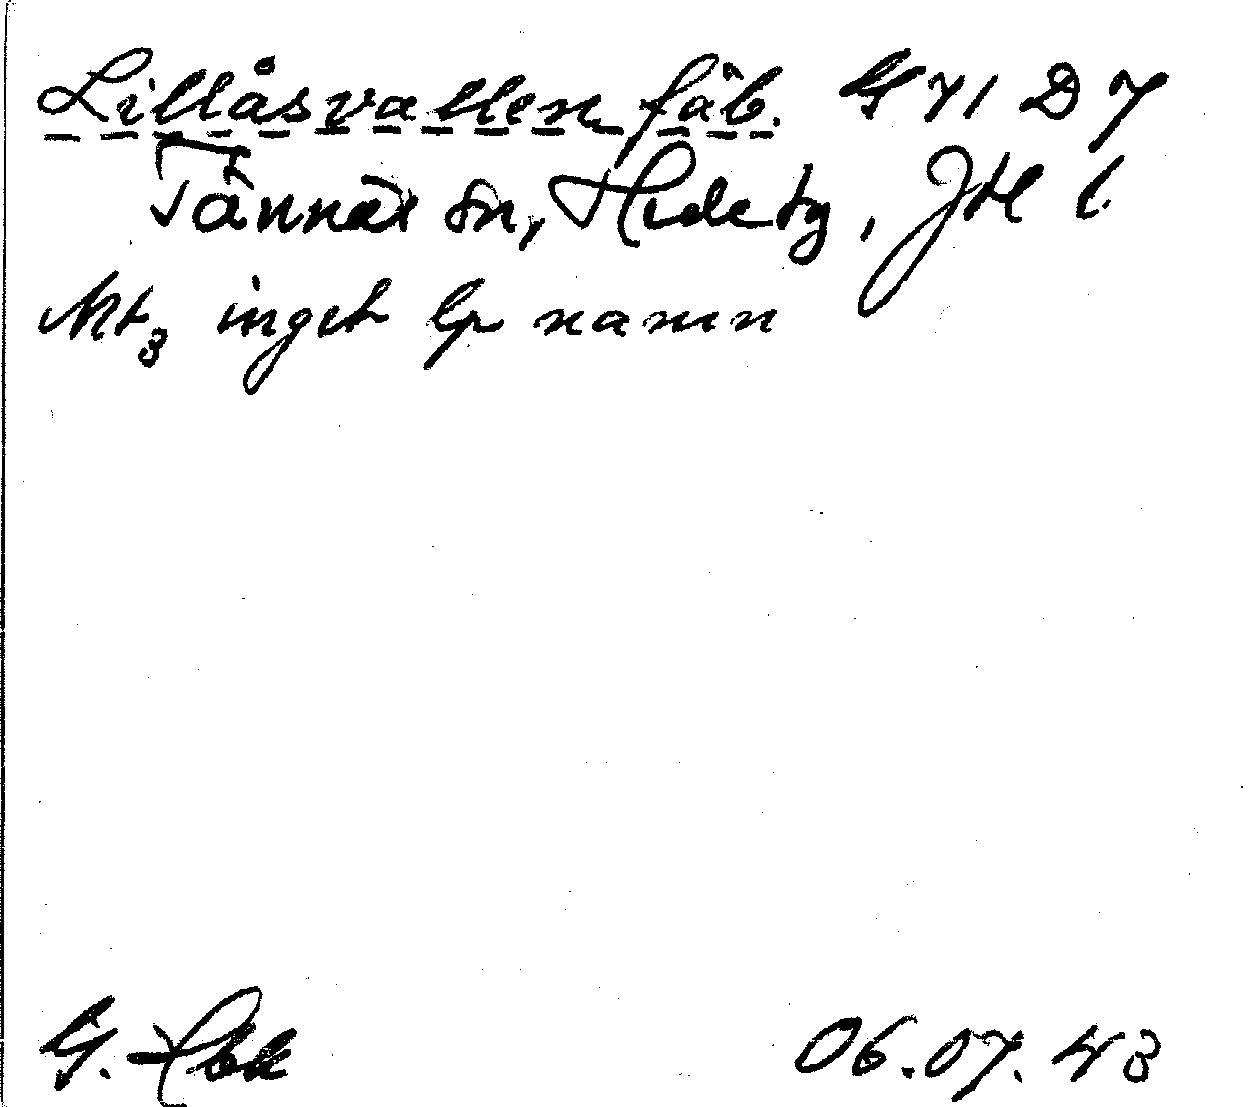 Lillåsvallen fäb. G VI D 7
Tännäs sn, Hede tg, Jtl l.
Kt3 inget lp namn
G.
06.07.43